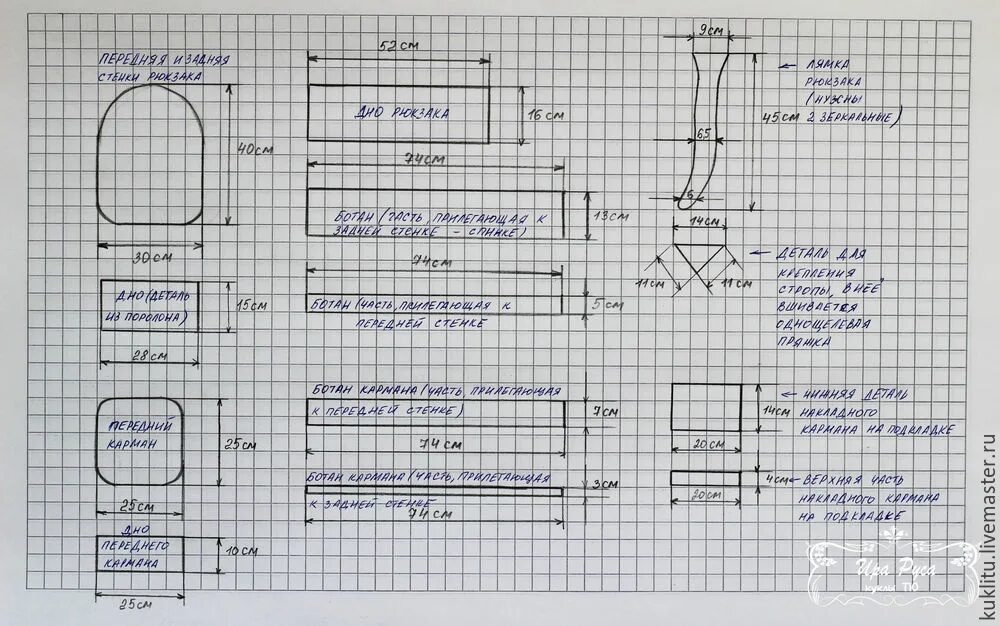 ПЕРЕДНЯЯ И ЗАДНЯЯ
СТЕНКИ РЮКЗАКА
40см
30см
ДНО (ДЕТАЛЬ
ИЗ ПОРОЛОНА)
15см
28см
ПЕРЕДНИЙ
КАРМАН
25см
25см
ДНО
ПЕРЕДНЕГО
КАРМАНА
10см
25см
52см
ДНО РЮКЗАКА
16см
74см
БОТАН (ЧАСТЬ, ПРИЛЕГАЮЩАЯ К
ЗАДНЕЙ СТЕНКЕ - СПИНКЕ)
13см
74см
БОТАН (ЧАСТЬ, ПРИЛЕГАЮЩАЯ К
ПЕРЕДНЕЙ СТЕНКЕ
5см
БОТАН КАРМАНА (ЧАСТЬ, ПРИЛЕГАЮЩАЯ
К ПЕРЕДНЕЙ СТЕНКЕ)
7см
74см
БОТАН КАРМАНА (ЧАСТЬ, ПРИЛЕГАЮЩАЯ
К ЗАДНЕЙ СТЕНКЕ
3см
74см
9см
6,5
5
45см
ЛЯМКА
РЮКЗАКА
(НУЖНЫ
2 ЗЕРКАЛЬНЫЕ)
14см
11см
11см
ДЕТАЛЬ ДЛЯ
КРЕПЛЕНИЯ
СТРОПЫ, В НЕЁ
ВШИВАЕТСЯ
ОДНОЩЕЛЕВАЯ
ПРЯЖКА
14см
20см
НИЖНЯЯ ДЕТАЛЬ
НАКЛАДНОГО
КАРМАНА НА ПОДКЛАДКЕ
4см
20см
ВЕРХНЯЯ ЧАСТЬ
НАКЛАДНОГО КАРМАНА
НА ПОДКЛАДКЕ
Ира Руса
куклы ТЮ
kuklitu.livemaster.ru